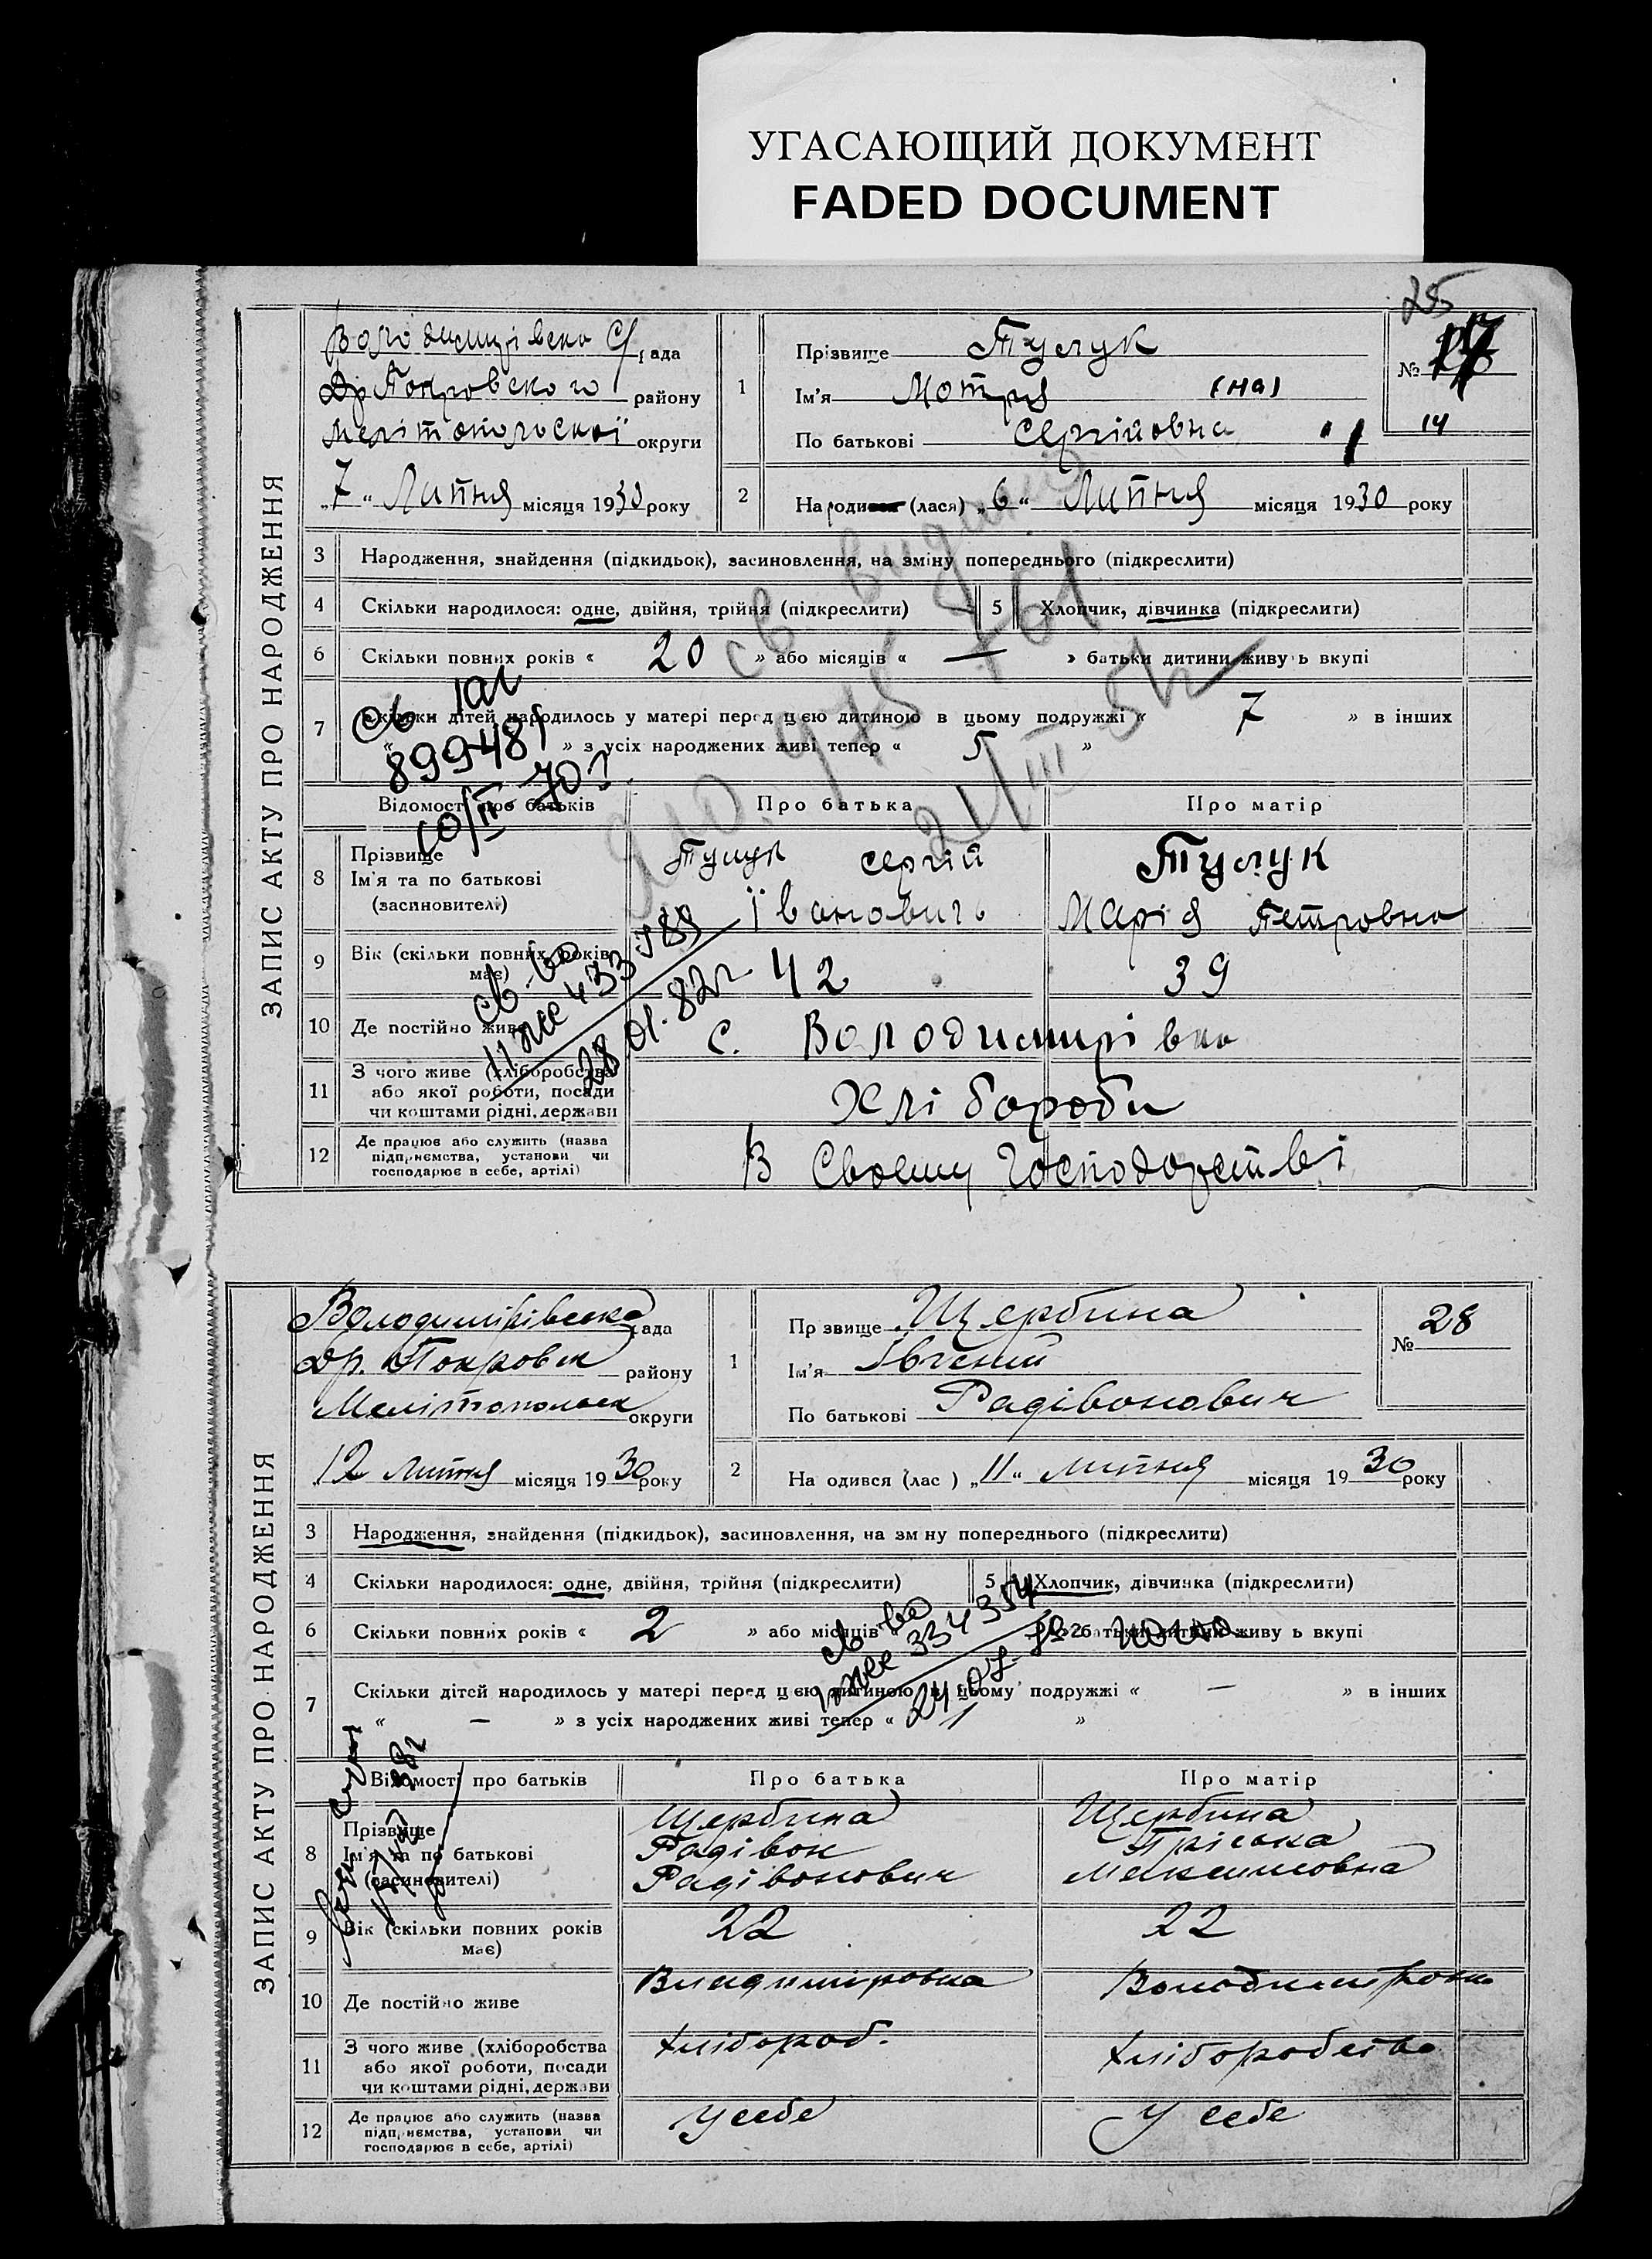 УГАСАЮЩИЙ ДОКУМЕНТ
FADED DOCUMENT
25
ЗАПИС АКТУ ПРО НАРОДЖЕННЯ
Володимирівсько С/рада
Др Покровского району
Мелітопольскої округи
„7“ Липня місяця 1930 року
1
Прізвище Тулук
Ім'я Мотря (на)
По батькові Сергійовна
№
14
2
Народи (лася) „6“ Липня місяця 1930 року
3 Народження, знайдення (підкидьок), засиновлення, на зміну попереднього (підкреслити)
4 Скільки народилося: одне, двійня, трійня (підкреслити)
5 Хлопчик, дівчинка (підкреслити)
6 Скільки повних років « 20 » або місяців « — » батьки дитини живу ь вкупі
7 Скільки дітей народилось у матері перед цією дитиною в цьому подружжі « 7 » в інших
« » з усіх народжених живі тепер « 5 »
Св
899481
10/II 70 г.
975 761
21/III 51
Відомості про батьків
Про батька
Про матір
8 Прізвище
Ім'я та по батькові
(засиновителі)
Тулук Сергій
Івановичь
Тулук
Марія Петровна
9 Вік (скільки повних років
має)
42
39
св-во
433789
28.01.82г
10 Де постійно живе
с. Володимирівка
11 З чого живе (хліборобства
або якої роботи, посади
чи коштами рідні, держави
Хлібороби
12 Де працює або служить (назва
підприємства, установи чи
господарює в себе, артілі)
В Своему Господарстві
ЗАПИС АКТУ ПРО НАРОДЖЕННЯ
Володимірівська рада
Др. Покровск району
Мелітопольск округи
„12 Липня місяця 1930 року
1
Пр звище Щербина
Ім'я Івгений
По батькові Радівонович
№ 28
2
На одився (лас ) „11“ липня місяця 1930 року
3 Народження, знайдення (підкидьок), засиновлення, на зм ну попереднього (підкреслити)
4 Скільки народилося: одне, двійня, трійня (підкреслити)
5 Хлопчик, дівчинка (підкреслити)
6 Скільки повних років « 2 » або місяців « батьки дитини живу ь вкупі
7 Скільки дітей народилось у матері перед цією дитиною в цьому подружжі « — » в інших
« — » з усіх народжених живі тепер « 1 »
св-во
334354
24.07.
Відомості про батьків
Про батька
Про матір
8 Прізвище
Ім'я та по батькові
(засиновителі)
Щербина
Радівон
Радівонович
Щербина
Пріська
Максимовна
9 Вік (скільки повних років
має)
22
22
10 Де постійно живе
Владимировка
11 З чого живе (хліборобства
або якої роботи, посади
чи коштами рідні, держави
Хлібороб.
Хліборобство
12 Де працює або служить (назва
підприємства, установи чи
господарює в себе, артілі)
У себе
У себе